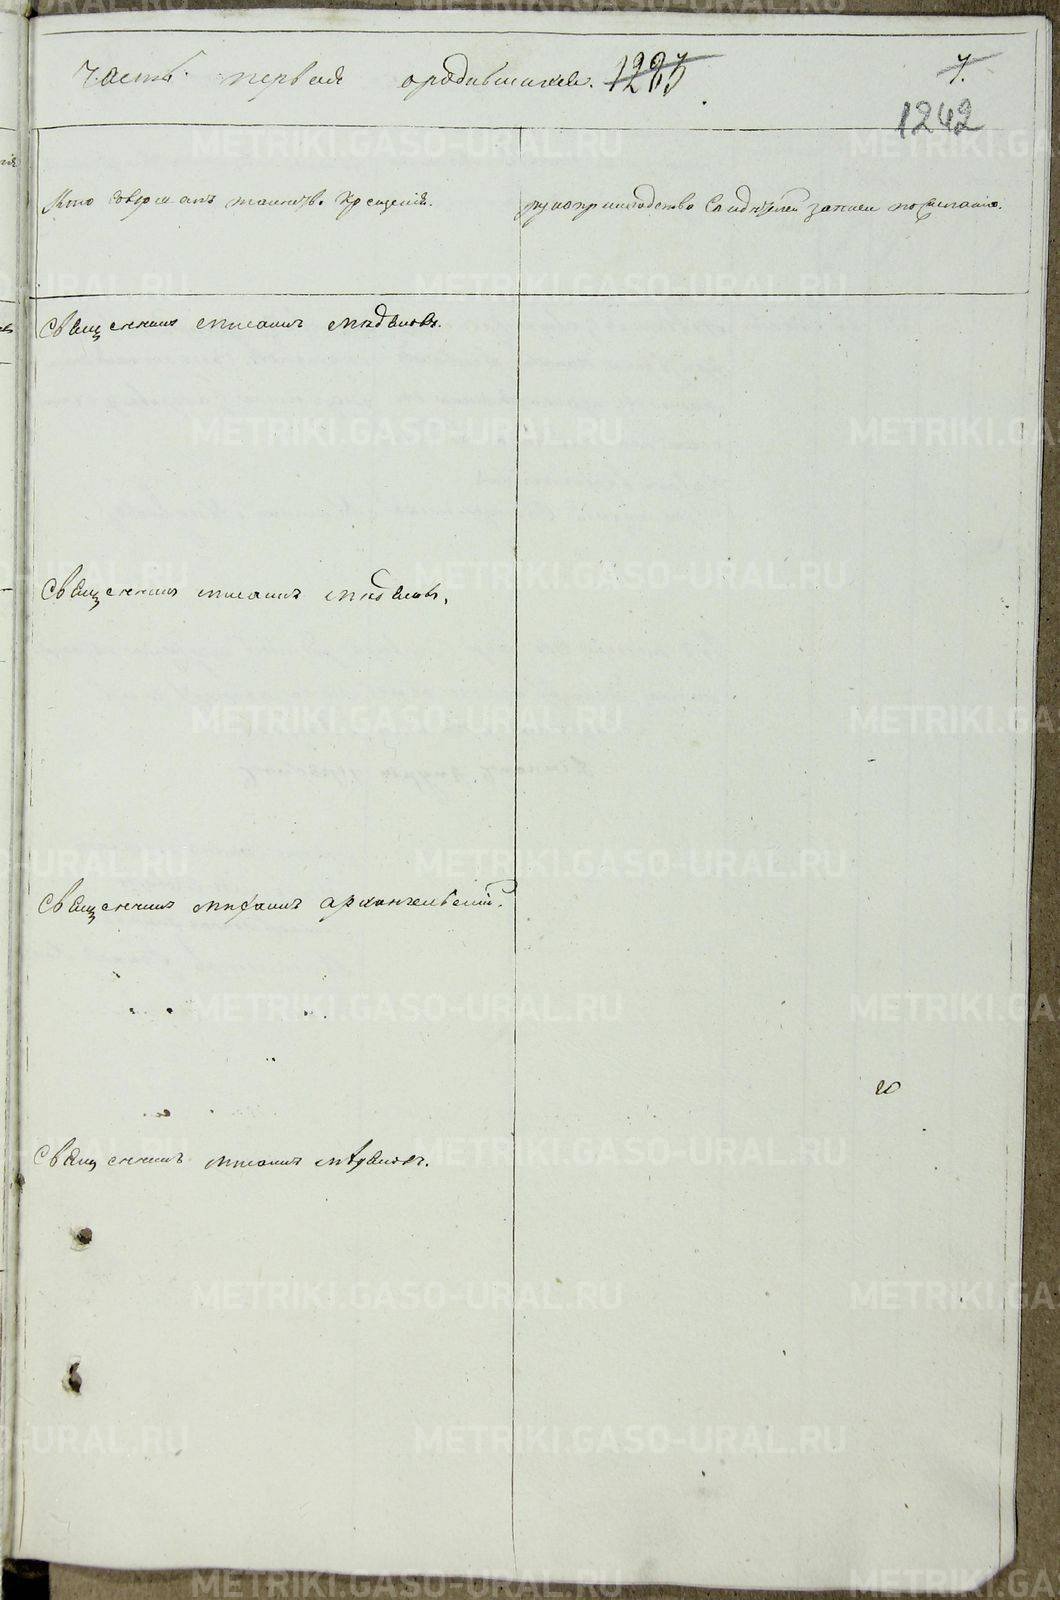 Часть первая ородившихся. 1235
7.
1242
Кто совершалъ таинств. Крещенія.
рукоприкладство Свидѣтелей записи по желанію.
Священникъ Михаилъ
Священникъ Михаилъ
Священникъ Михаилъ Архангельскій.
Священникъ Михаилъ
METRIKI.GASO-URAL.RU